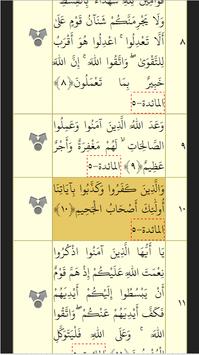 قَوَّامِينَ لِلَّهِ شُهَدَاءَ بِالْقِسْطِ
وَلَا يَجْرِمَنَّكُمْ شَنَآنُ قَوْمٍ عَلَى
أَلَّا تَعْدِلُوا ۚ اعْدِلُوا هُوَ أَقْرَبُ
لِلتَّقْوَىٰ ۖ وَاتَّقُوا اللَّهَ ۚ إِنَّ اللَّهَ
خَبِيرٌ بِمَا تَعْمَلُونَ ﴿٨﴾
المائدة-٥
٨
وَعَدَ اللَّهُ الَّذِينَ آمَنُوا وَعَمِلُوا
الصَّالِحَاتِ ۙ لَهُمْ مَغْفِرَةٌ وَأَجْرٌ
عَظِيمٌ ﴿٩﴾ المائدة-٥
٩
وَالَّذِينَ كَفَرُوا وَكَذَّبُوا بِآيَاتِنَا
أُولَٰئِكَ أَصْحَابُ الْجَحِيمِ ﴿١٠﴾
المائدة-٥
١٠
يَا أَيُّهَا الَّذِينَ آمَنُوا اذْكُرُوا
نِعْمَتَ اللَّهِ عَلَيْكُمْ إِذْ هَمَّ قَوْمٌ
أَنْ يَبْسُطُوا إِلَيْكُمْ أَيْدِيَهُمْ
فَكَفَّ أَيْدِيَهُمْ عَنْكُمْ ۖ وَاتَّقُوا
اللَّهَ ۚ وَعَلَى اللَّهِ فَلْيَتَوَكَّلِ
١١